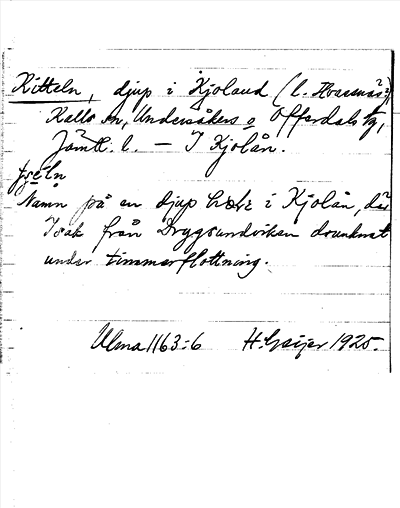 Kitteln, djup i Kjoland (l. Hvarnsås?),
Kalls sn, Undersåkers o Offerdals tg,
Jämtl. l. — I Kjolån.
Namn på en djup i Kjolån, där
Isak från Dryggsundviken drunknat
under timmerflottning.
Ulma 1163:6 H. Geijer 1925.